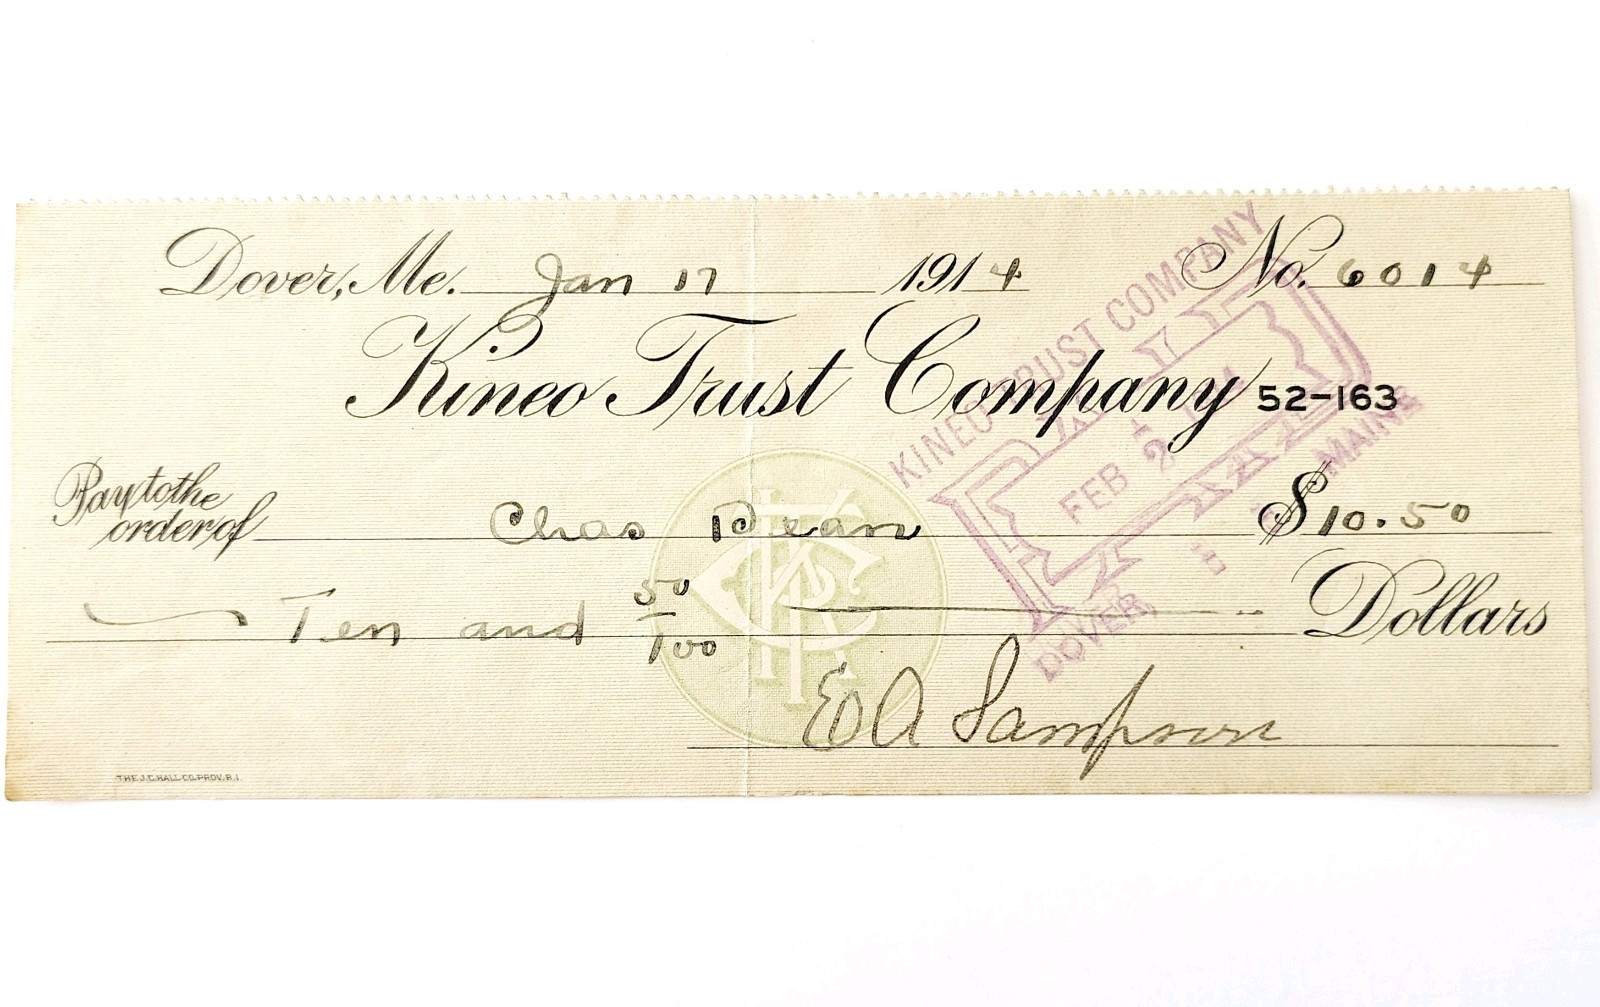 Dover, Me. Jan 17 1914 No. 6014
Kineo Trust Company 52-163
Pay to the
order of Chas Dean $10.50
Ten and 50/100 Dollars
E A Sampson
THE J.C. HALL CO. PROV. R.I.
KINEO TRUST COMPANY
PAID
FEB 2
DOVER, MAINE